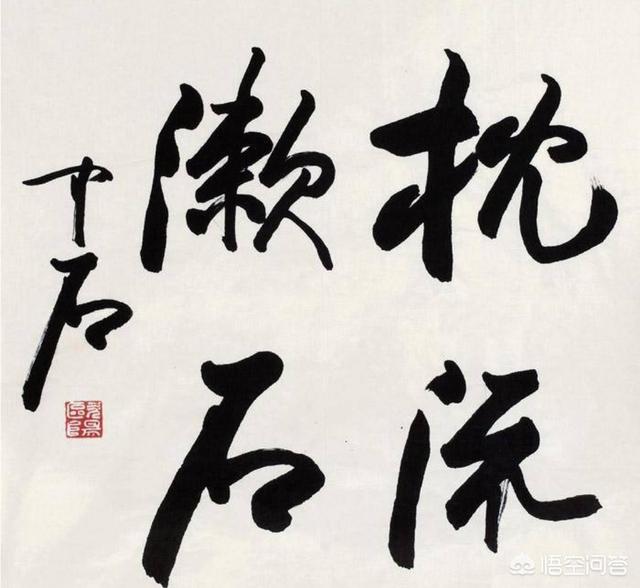 枕流
漱石
中石
悟空问答